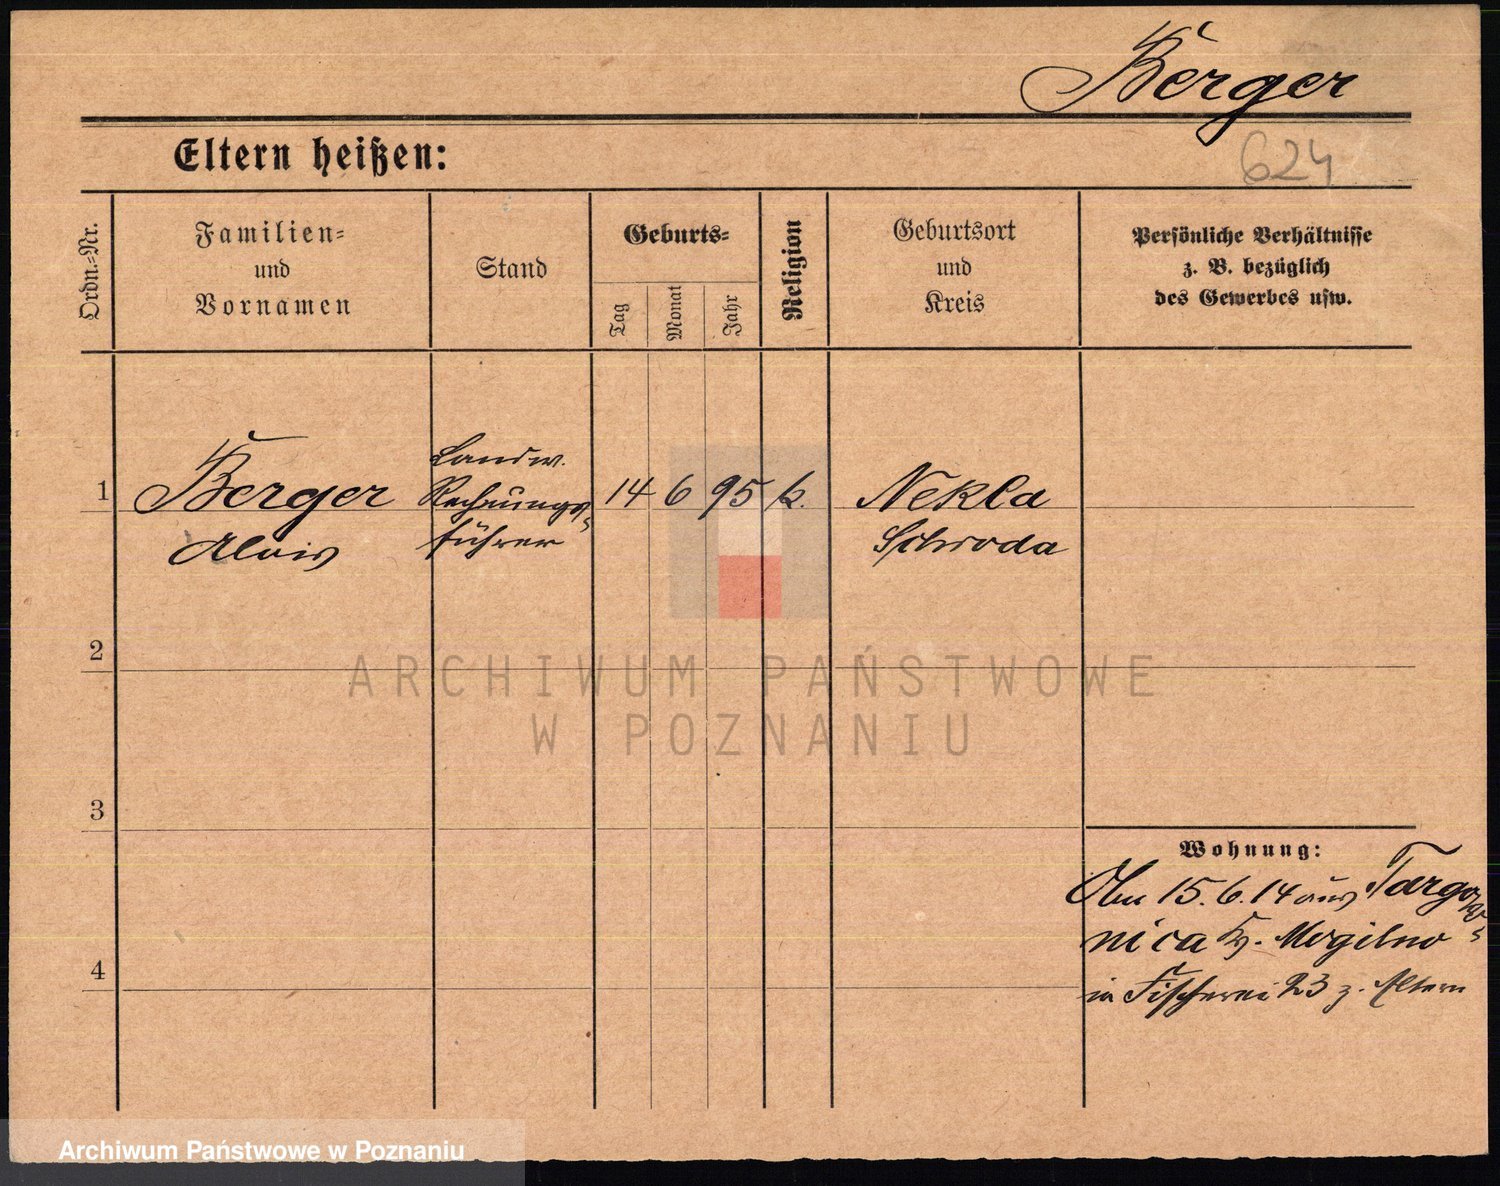 Berger
Eltern heißen:
624
Ordn.-Nr.
Familien-
und
Vornamen
Stand
Geburts-
Tag
Monat
Jahr
Religion
Geburtsort
und
Kreis
Persönliche Verhältnisse
z. B. bezüglich
des Gewerbes usw.
1
Berger
Alois
Landw.
Rechnungs-
führer
14 6 95 k.
Nekla
Schroda
2
ARCHIWUM PAŃSTWOWE
W POZNANIU
3
Wohnung:
15.6.14 aus Targow-
nica Kr. Mogilno
in Fischerei 23 z. Eltern
4
Archiwum Państwowe w Poznaniu